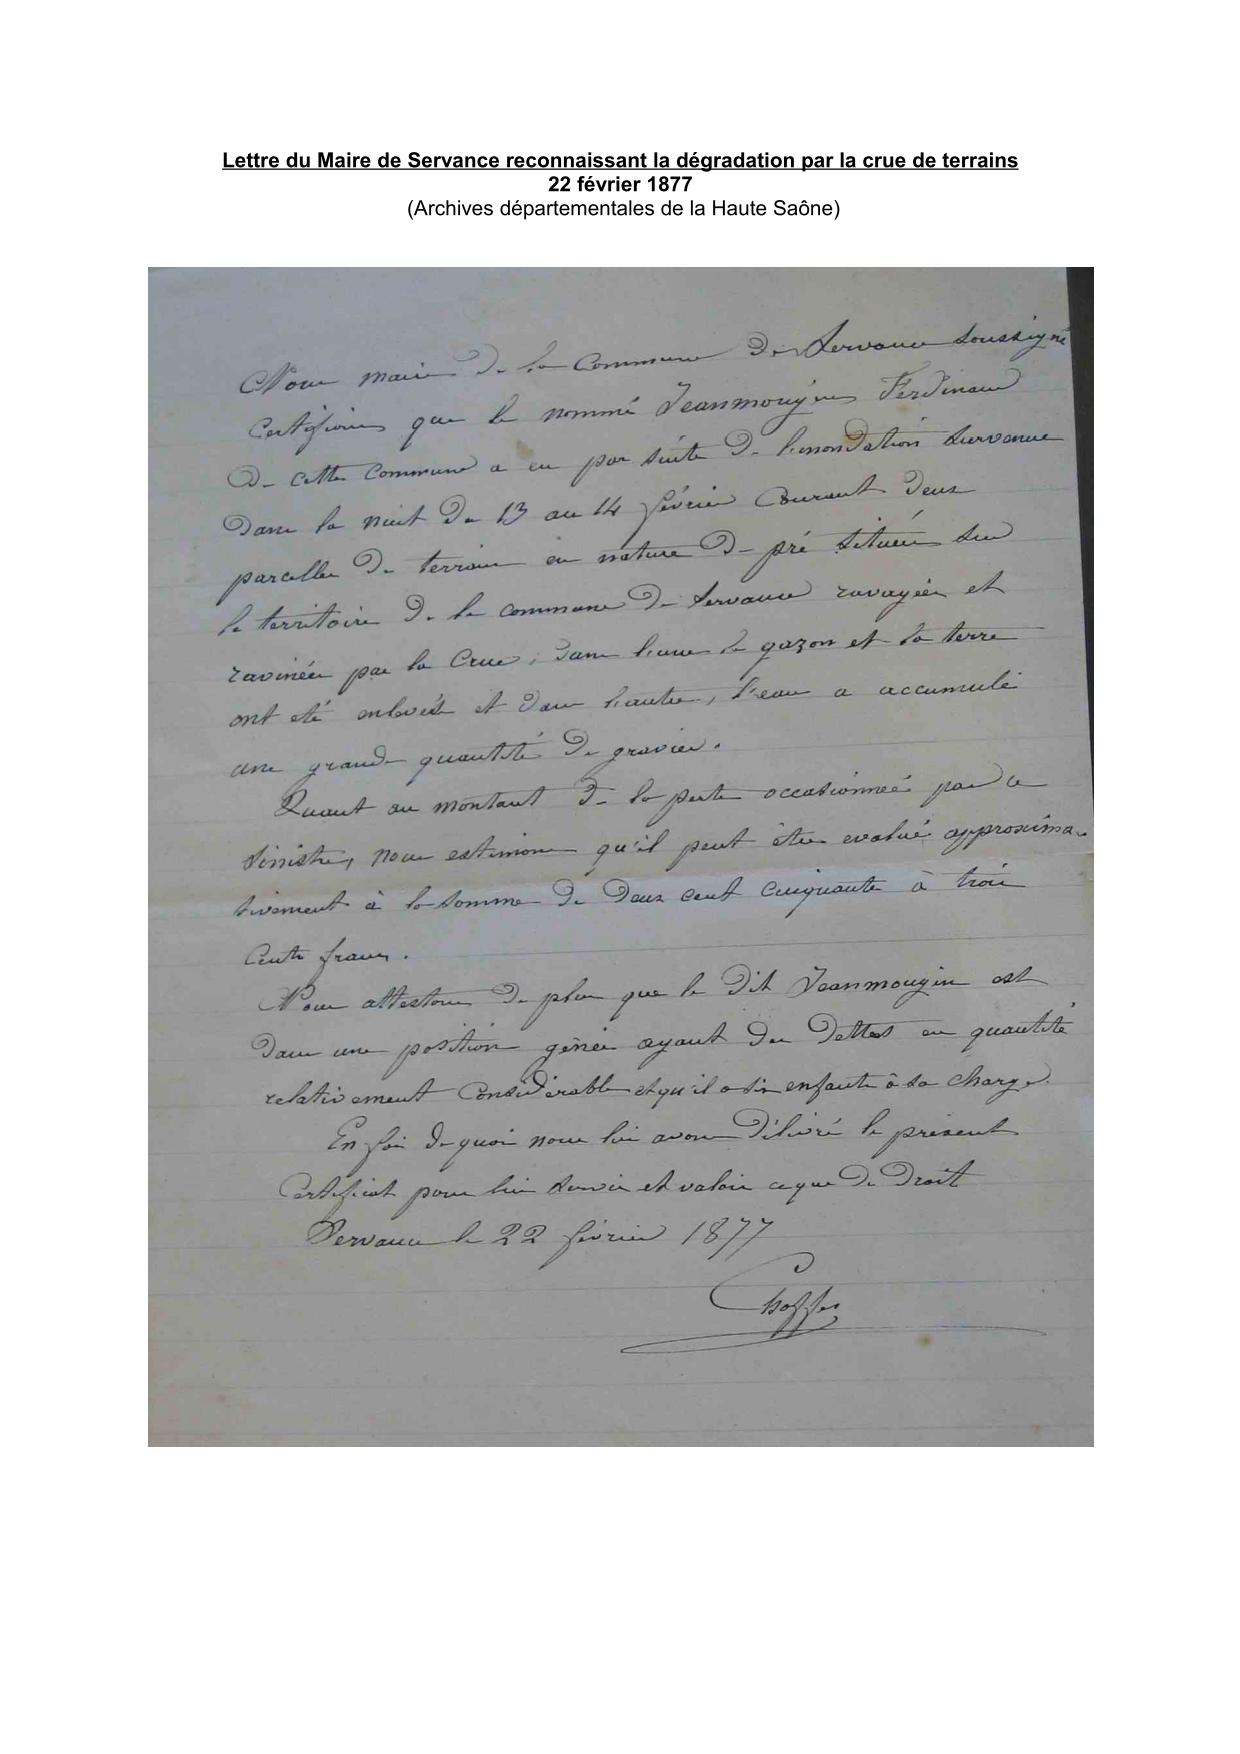 Lettre du Maire de Servance reconnaissant la dégradation par la crue de terrains
22 février 1877
(Archives départementales de la Haute Saône)
Nous maire de la commune de Servance soussigné
certifions que le nommé Jeanmougin Ferdinand
de cette commune a eu par suite de l'inondation survenue
dans la nuit du 13 au 14 février courant deux
parcelles de terrain en nature de pré situées sur
le territoire de la commune de Servance ravagées et
ravinées par la crue ; dans l'une le gazon et la terre
ont été enlevés et dans l'autre, l'eau a accumulé
une grande quantité de gravier.
Quant au montant de la perte occasionnée par ce
sinistre, nous estimons qu'il peut être evalué approxima-
tivement à la somme de deux cent cinquante à trois
cents francs.
Nous attestons de plus que le dit Jeanmougin est
dans une position gênée ayant des dettes en quantité
relativement considérable et qu'il a six enfants à sa charge.
En foi de quoi nous lui avons délivré le présent
certificat pour lui servir et valoir ce que de droit
Servance le 22 février 1877